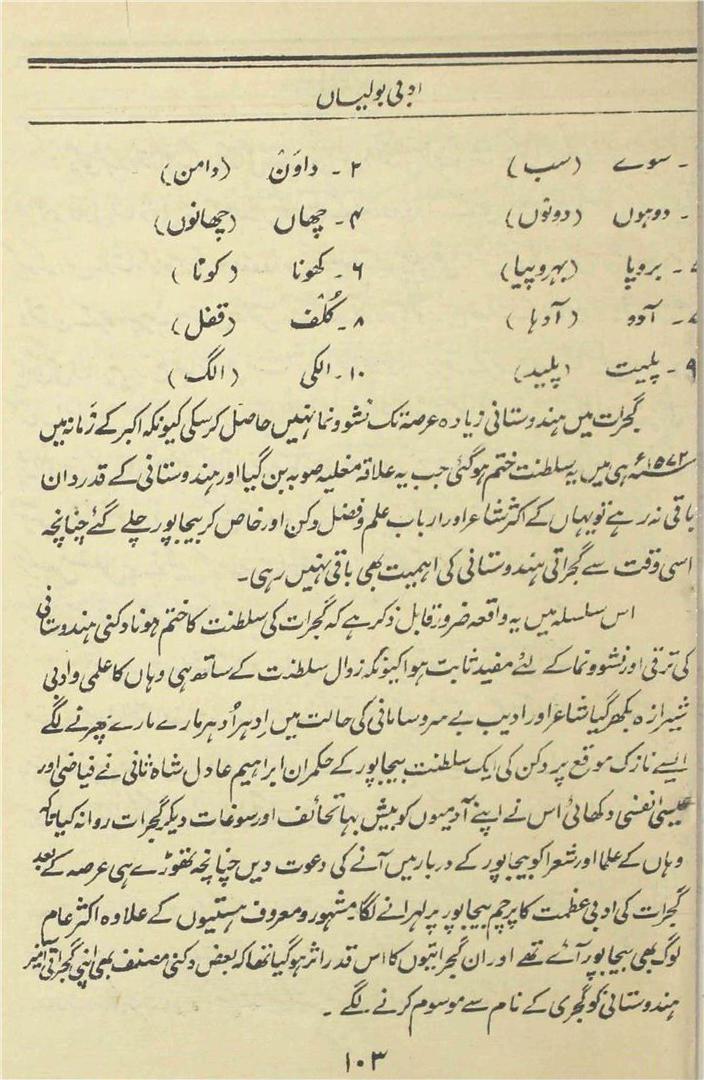 ادبی بولیاں
۔ سوے (سب) ۲۔ داوَنْ (دامن)
۔ دوہوں (دونوں) ۴۔ چھاں (چھانوں)
۔ بروپا (بہروپیا) ۶۔ کھونا (کونا)
۔ آدو (آدہا) ۸۔ کُلْف (قفل)
۹۔ پلیت (پلید) ۱۰۔ الکی (الگ)
گجرات میں ہندوستانی زیادہ عرصۃ تک نشوونما نہیں حاصل کرسکی کیونکہ اکبر کے زمانہ میں
سنہ ۱۵۷۲ء ہی میں یہ سلطنت ختم ہوگئی جب یہ علاقہ مغلیہ صوبہ بن گیا اور ہندوستانی کے قدردان
باقی نہ رہے تو یہاں کے اکثر شاعر اور ارباب علم و فضل دکن اور خاص کر بیجاپور چلے گئے چنانچہ
اسی وقت سے گجراتی ہندوستانی کی اہمیت بھی باقی نہیں رہی۔
اس سلسلہ میں یہ واقعہ ضرور قابل ذکر ہے کہ گجرات کی سلطنت کا ختم ہونا دکنی ہندوستانی
کی ترقی اور نشوونما کے لئے مفید ثابت ہوا کیونکہ زوال سلطنت کے ساتھ ہی وہاں کا علمی و ادبی
شیرازہ بکھر گیا شاعر اور ادیب بے سروسامانی کی حالت میں اِدہر اُدہر مارے مارے پھرنے لگے
ایسے نازک موقع پر دکن کی ایک سلطنت بیجاپور کے حکمران ابراہیم عادل شاہ ثانی نے فیاضی اور
عیسیٰ نفسی دکھائی اس نے اپنے آدمیوں کو بیش بہا تحائف اور سوغات دیکر گجرات روانہ کیا تاکہ
وہاں کے علما اور شعرا کو بیجاپور کے دربار میں آنے کی دعوت دیں چنانچہ تھوڑے ہی عرصہ کے بعد
گجرات کی ادبی عظمت کا پرچم بیجاپور پر لہرانے لگا مشہور و معروف ہستیوں کے علاوہ اکثر عام
لوگ بھی بیجاپور آے تھے اور ان گجراتیوں کا اس قدر اثر ہوگیا تھا کہ بعض دکنی مصنف بھی اپنی گجراتی آمیز
ہندوستانی کو گجری کے نام سے موسوم کرنے لگے۔
۱۰۳